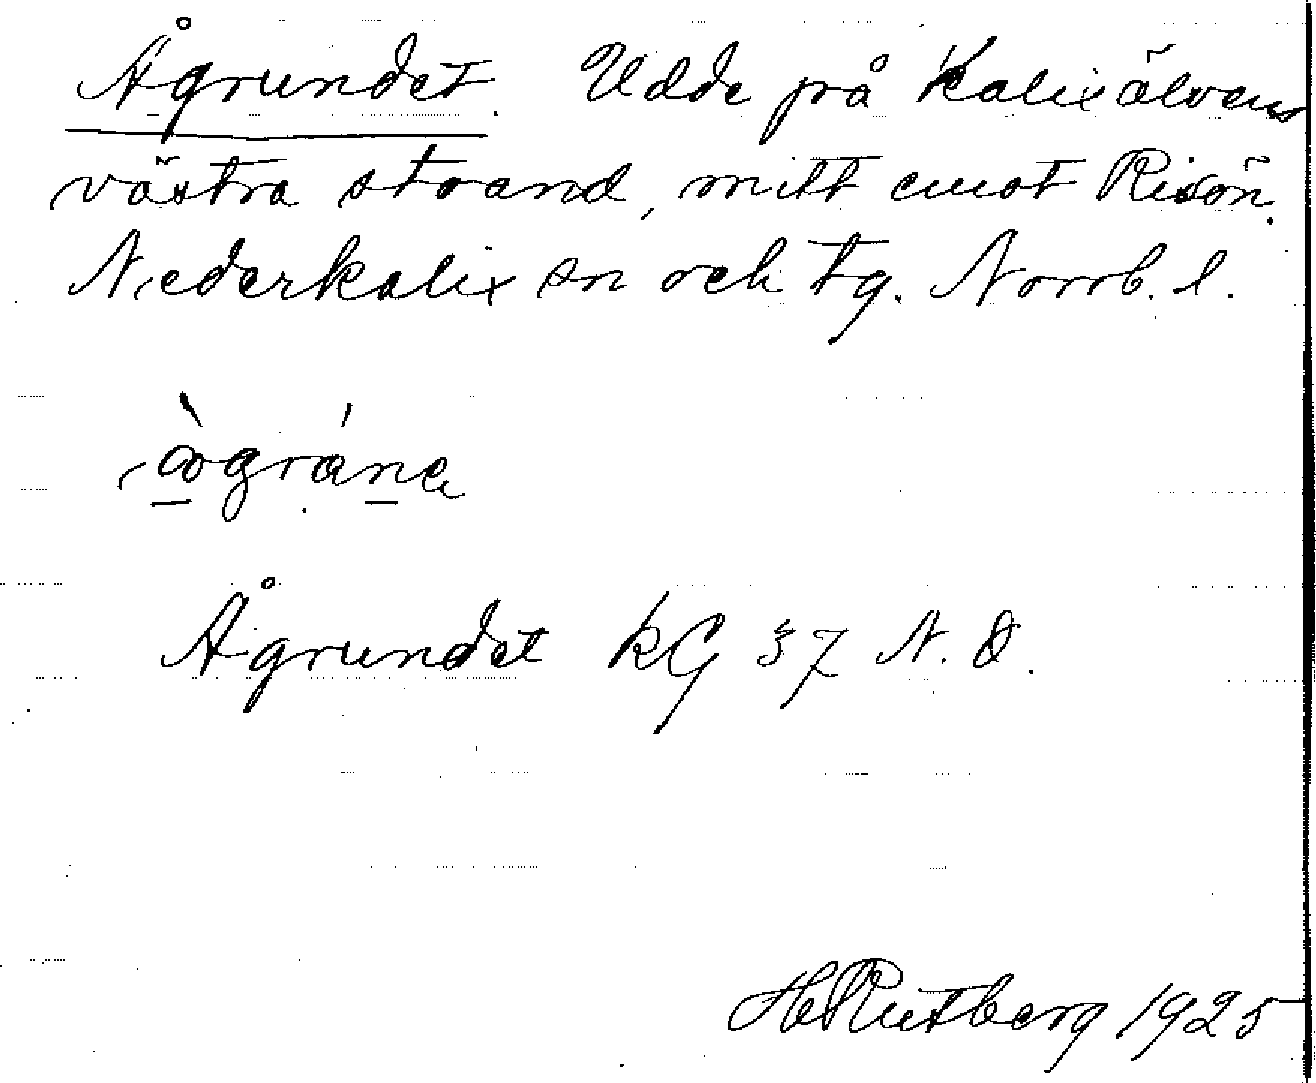 Ågrundet. Udde på Kalixälvens
västra strand, mitt emot Risön.
Nederkalix sn och tg. Norrb. l.
Ågrundet KG 37 N.O.
H Rutberg 1925